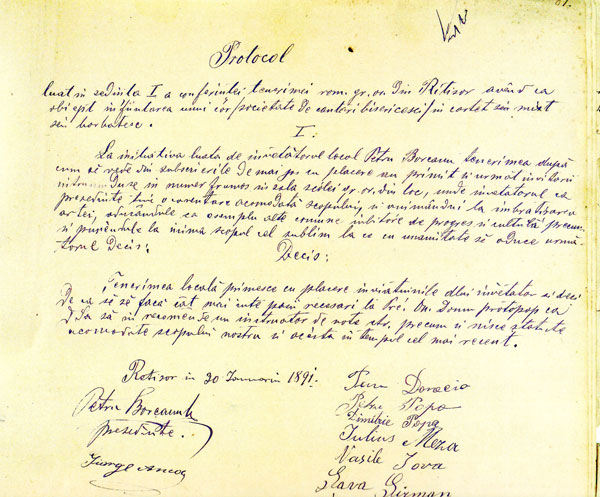 Protocol
luat in sedinta I a conferintei tenerimei rom. gr. or. din Ritisor avênd ca
obiept infiintarea unui cor/societate de cantări bisericesci/in cartet sau mixt
seu barbatesc.
I.
La initiativa luata de invětătorul local Petru Borceanu tenerimea după
cum se vede din subscrierile de mai jos cu placere au primit si urmat invitării
intrunandu se in numer frumos in sala scolei gr. or. din loc, unde invetatorul ca
presedinte tine o cuventare acomodată scopului, si animăndui la imbratisarea
artei, aducandule ca exemplu alte comune iubitóre de progres si cultură precum
si punêndule la inima scopul cel sublim la ce cu unanimitate se aduce urmă
torul Decis:
Decis:
Tenerimea locală primesce cu placere invětaturile dlui invětator si deci
de ca să se facă cât mai iute pasii necesari la Pré. On. Domn protopop ca
dsa să in recomênde un instructor de note etc. precum si nisce statute
acomodate scopului nostru si acésta in tempul cel mai recent.
Retisor in 20 Ianuariu 1891.
Petru Borceanu
presedinte.
Iuon Doracia
Petru Popa
Dimitrie Popa
Iulius Meza
Vasile Iova
Sava